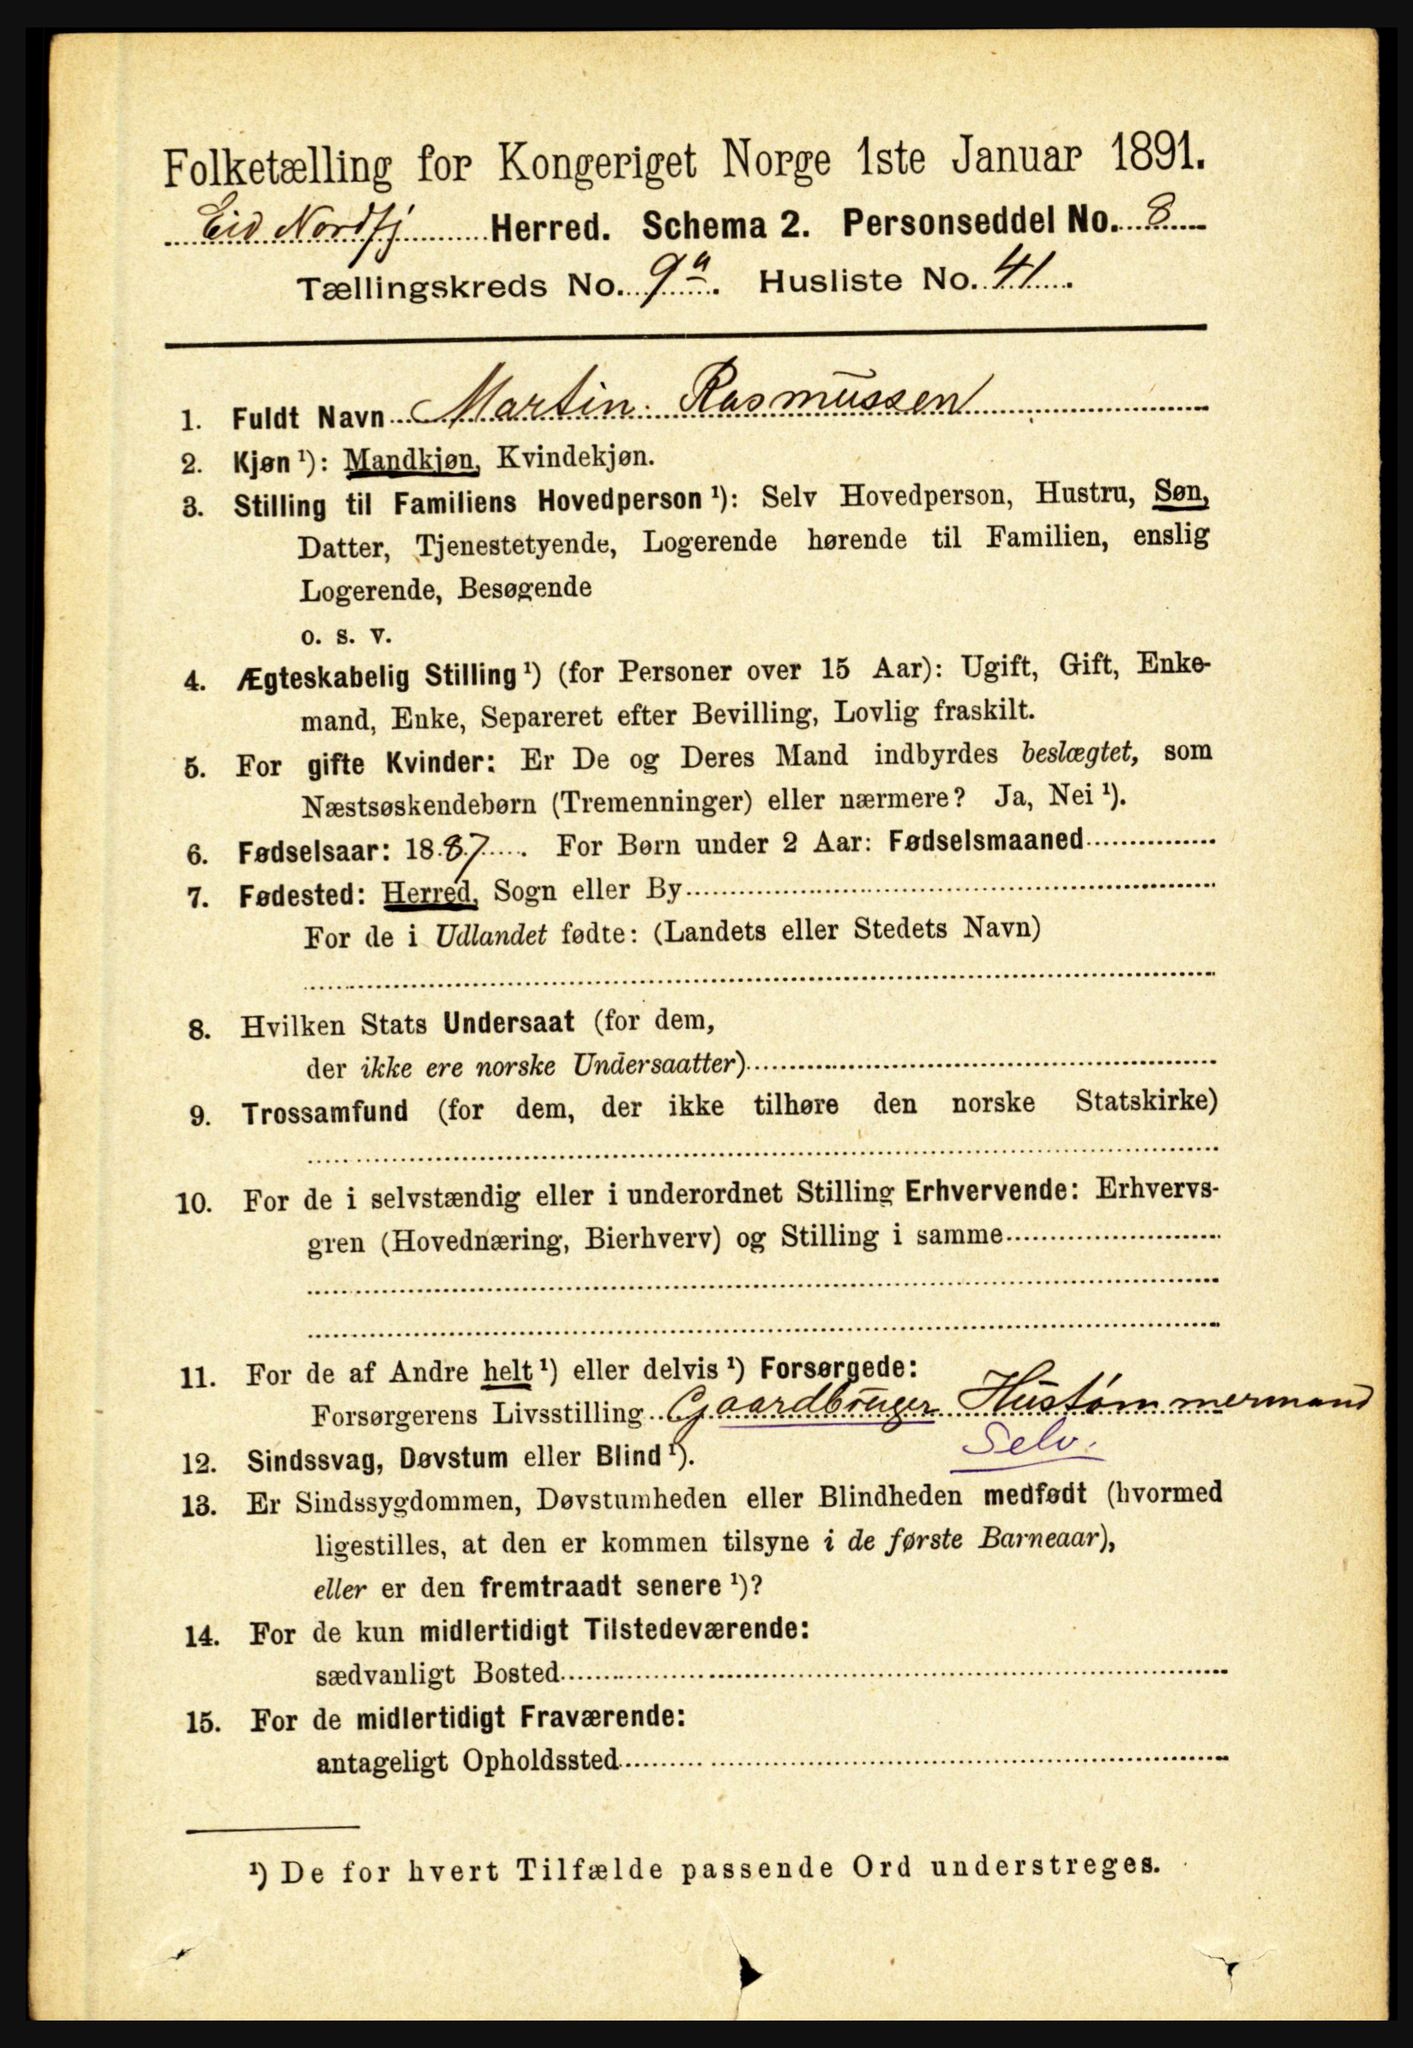 Folketælling for Kongeriget Norge 1ste Januar 1891.
Eid Nordfj Herred. Schema 2. Personseddel No. 8
Tællingskreds No. 9a. Husliste No. 41.
1. Fuldt Navn Martin Rasmussen
2. Kjøn ¹): Mandkjøn, Kvindekjøn.
3. Stilling til Familiens Hovedperson ¹): Selv Hovedperson, Hustru, Søn,
Datter, Tjenestetyende, Logerende hørende til Familien, enslig
Logerende, Besøgende
o. s. v.
4. Ægteskabelig Stilling ¹) (for Personer over 15 Aar): Ugift, Gift, Enke-
mand, Enke, Separeret efter Bevilling, Lovlig fraskilt.
5. For gifte Kvinder: Er De og Deres Mand indbyrdes beslægtet, som
Næstsøskendebørn (Tremenninger) eller nærmere? Ja, Nei ¹).
6. Fødselsaar: 1887. For Børn under 2 Aar: Fødselsmaaned
7. Fødested: Herred, Sogn eller By
For de i Udlandet fødte: (Landets eller Stedets Navn)
8. Hvilken Stats Undersaat (for dem,
der ikke ere norske Undersaatter)
9. Trossamfund (for dem, der ikke tilhøre den norske Statskirke)
10. For de i selvstændig eller i underordnet Stilling Erhvervende: Erhvervs-
gren (Hovednæring, Bierhverv) og Stilling i samme
11. For de af Andre helt ¹) eller delvis ¹) Forsørgede:
Forsørgerens Livsstilling Gaardbruger Hustømmermand
Selv.
12. Sindssvag, Døvstum eller Blind ¹).
13. Er Sindssygdommen, Døvstumheden eller Blindheden medfødt (hvormed
ligestilles, at den er kommen tilsyne i de første Barneaar),
eller er den fremtraadt senere ¹)?
14. For de kun midlertidigt Tilstedeværende:
sædvanligt Bosted
15. For de midlertidigt Fraværende:
antageligt Opholdssted
¹) De for hvert Tilfælde passende Ord understreges.